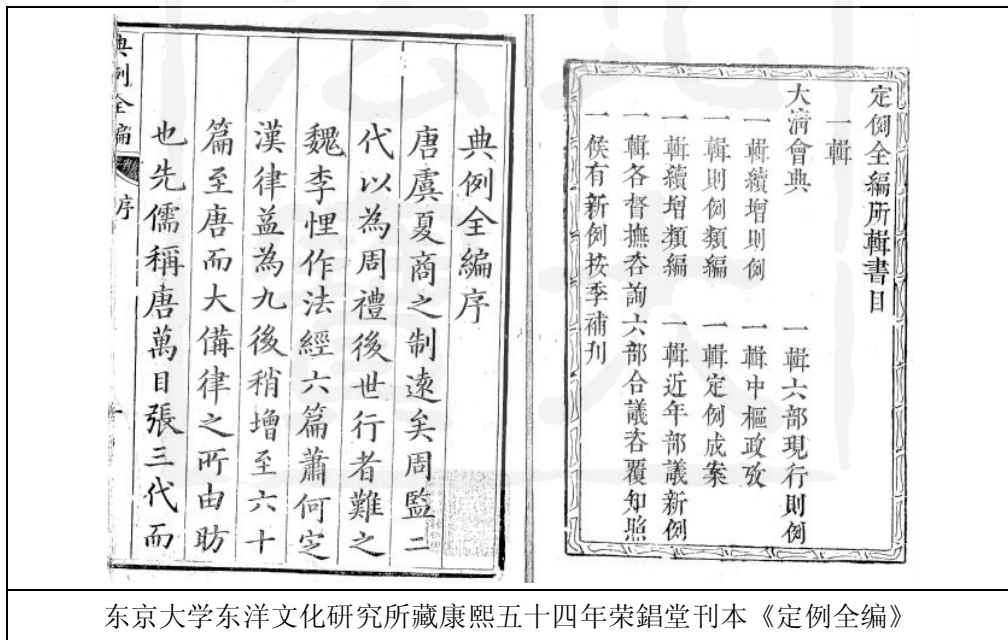 定例全編所輯書目
一輯
大清會典 一輯六部現行則例
一輯續增則例 一輯中樞政攷
一輯則例類編 一輯定例成案
一輯續增類編 一輯近年部議新例
一輯各督撫咨詢六部合議咨覆知照
一俟有新例按季補刋
典例全編序
唐虞夏商之制遠矣周監二
代以為周禮後世行者難之
魏李悝作法經六篇蕭何定
漢律益為九後稍增至六十
篇至唐而大備律之所由昉
也先儒稱唐萬目張三代而
典例全編 序
东京大学东洋文化研究所藏康熙五十四年荣錩堂刊本《定例全编》